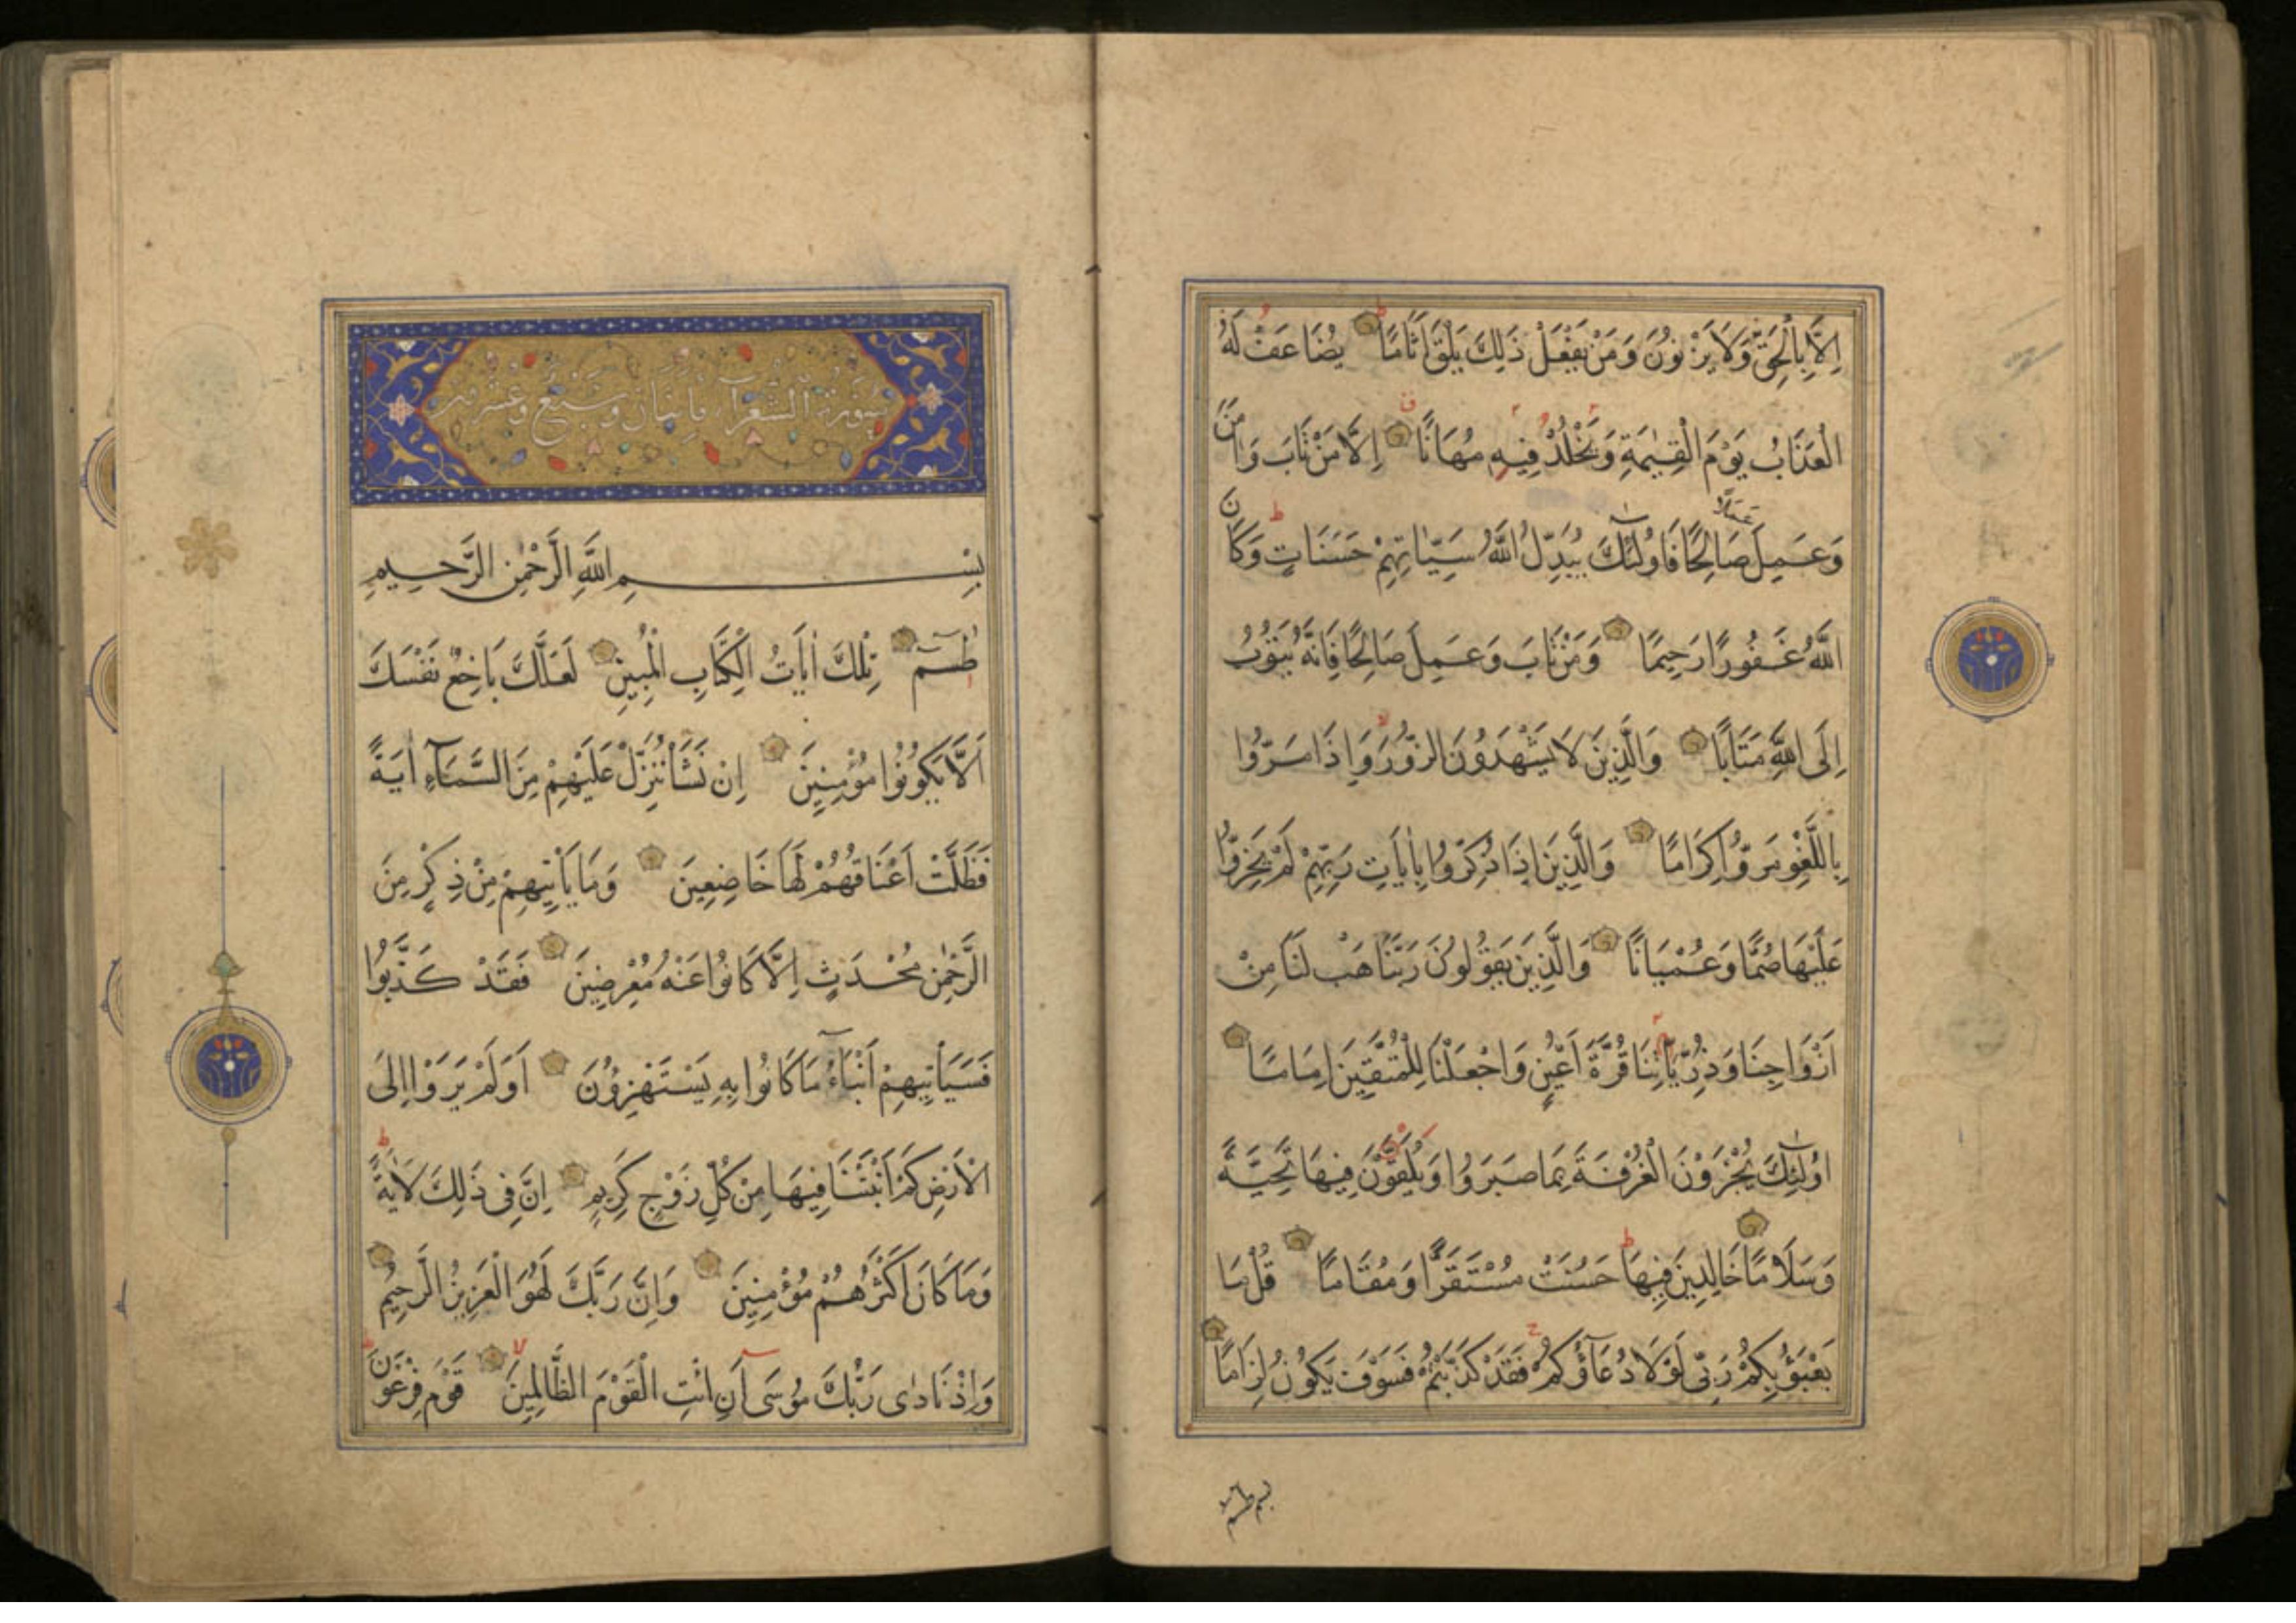 اِلَّا بِالْحَقِّ وَلَا يَزْنُونَ وَمَنْ يَفْعَلْ ذَلِكَ يَلْقَ اَثَامًا يُضَاعَفْ لَهُ
الْعَذَابُ يَوْمَ الْقِيٰمَةِ وَيَخْلُدْ فِيهِ مُهَانًا اِلَّا مَنْ تَابَ وَاٰمَنَ
وَعَمِلَ عَمَلًا صَالِحًا فَاُولٰئِكَ يُبَدِّلُ اللّٰهُ سَيِّاٰتِهِمْ حَسَنَاتٍ وَكَانَ
اللّٰهُ غَفُورًا رَحِيمًا وَمَنْ تَابَ وَعَمِلَ صَالِحًا فَاِنَّهُ يَتُوبُ
اِلَى اللّٰهِ مَتَابًا وَالَّذِينَ لَا يَشْهَدُونَ الزُّورَ وَاِذَا مَرُّوا
بِاللَّغْوِ مَرُّوا كِرَامًا وَالَّذِينَ اِذَا ذُكِّرُوا بِاٰيَاتِ رَبِّهِمْ لَمْ يَخِرُّوا
عَلَيْهَا صُمًّا وَعُمْيَانًا وَالَّذِينَ يَقُولُونَ رَبَّنَا هَبْ لَنَا مِنْ
اَزْوَاجِنَا وَذُرِّيَّاتِنَا قُرَّةَ اَعْيُنٍ وَاجْعَلْنَا لِلْمُتَّقِينَ اِمَامًا
اُولٰئِكَ يُجْزَوْنَ الْغُرْفَةَ بِمَا صَبَرُوا وَيُلَقَّوْنَ فِيهَا تَحِيَّةً
وَسَلَامًا خَالِدِينَ فِيهَا حَسُنَتْ مُسْتَقَرًّا وَمُقَامًا قُلْ مَا
يَعْبَؤُ بِكُمْ رَبِّى لَوْلَا دُعَآؤُكُمْ فَقَدْ كَذَّبْتُمْ فَسَوْفَ يَكُونُ لِزَامًا
بسم طسم
سُورَةُ الشُّعَرَآءِ مِائَتَانِ وَسَبْعٌ وَعِشْرُونَ
بِسْمِ اللّٰهِ الرَّحْمٰنِ الرَّحِيمِ
طٰسٓمٓ تِلْكَ اٰيَاتُ الْكِتَابِ الْمُبِينِ لَعَلَّكَ بَاخِعٌ نَفْسَكَ
اَلَّا يَكُونُوا مُؤْمِنِينَ اِنْ نَشَأْ نُنَزِّلْ عَلَيْهِمْ مِنَ السَّمَآءِ اٰيَةً
فَظَلَّتْ اَعْنَاقُهُمْ لَهَا خَاضِعِينَ وَمَا يَأْتِيهِمْ مِنْ ذِكْرٍ مِنَ
الرَّحْمٰنِ مُحْدَثٍ اِلَّا كَانُوا عَنْهُ مُعْرِضِينَ فَقَدْ كَذَّبُوا
فَسَيَأْتِيهِمْ اَنْبَآءُ مَا كَانُوا بِهِ يَسْتَهْزِؤُنَ اَوَلَمْ يَرَوْا اِلَى
الْاَرْضِ كَمْ اَنْبَتْنَا فِيهَا مِنْ كُلِّ زَوْجٍ كَرِيمٍ اِنَّ فِى ذَلِكَ لَاٰيَةً
وَمَا كَانَ اَكْثَرُهُمْ مُؤْمِنِينَ وَاِنَّ رَبَّكَ لَهُوَ الْعَزِيزُ الرَّحِيمُ
وَاِذْ نَادٰى رَبُّكَ مُوسَى اَنِ ائْتِ الْقَوْمَ الظَّالِمِينَ قَوْمَ فِرْعَوْنَ